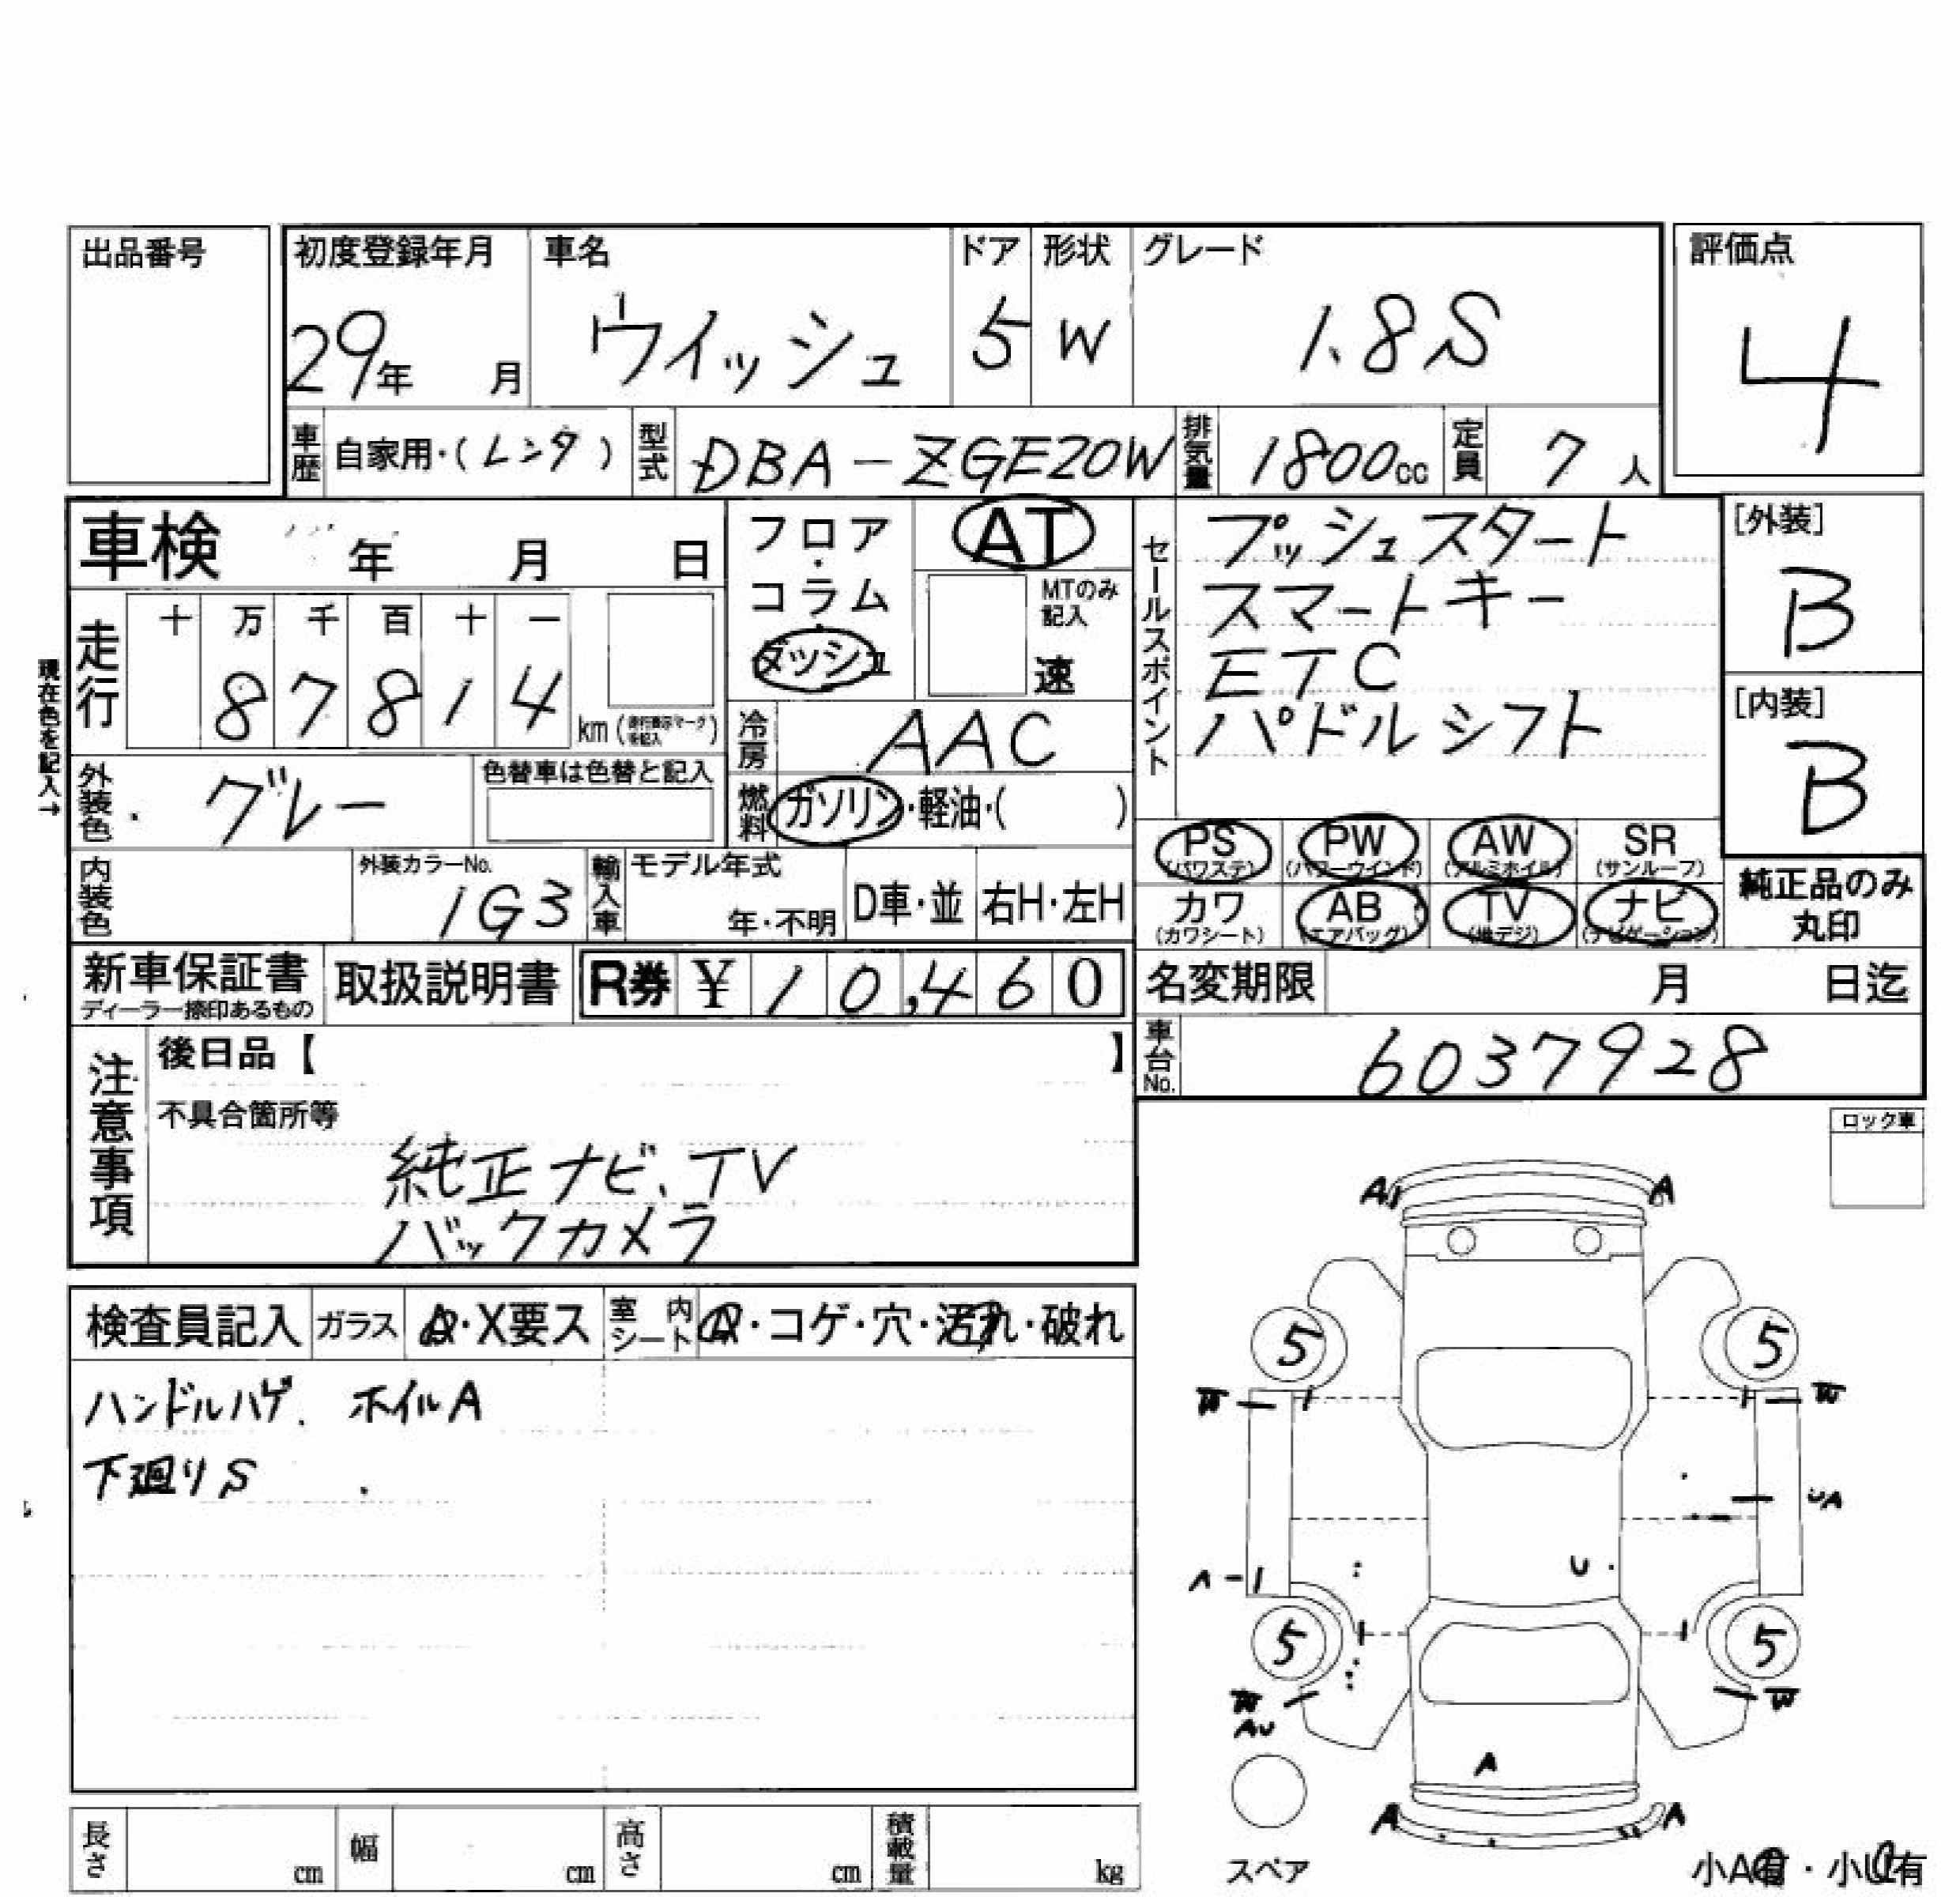 出品番号
初度登録年月 車名 ドア 形状 グレード 評価点
29年 月 ウイッシュ 5 W 1.8S 4
車歴 自家用・(レンタ) 型式 DBA-ZGE20W 排気量 1800cc 定員 7人
車検 年 月 日
フロア・コラム・ダッシュ
AT
MTのみ記入
速
セールスポイント
プッシュスタート
スマートキー
ETC
パドルシフト
[外装]
B
[内装]
B
現在色を記入→
走行 十 万 千 百 十 一
8 7 8 1 4 km
冷房 AAC
外装色 グレー 色替車は色替と記入
燃料 ガソリン・軽油・( )
PS (パワステ) PW (パワーウインド) AW (アルミホイル) SR (サンルーフ)
カワ (カワシート) AB (エアバッグ) TV (地デジ) ナビ (ナビゲーション)
純正品のみ丸印
内装色 外装カラーNo. 1G3 輸入車 モデル年式 年・不明 D車・並 右H・左H
新車保証書 ディーラー捺印あるもの 取扱説明書 R券 ¥ 10,460
名変期限 月 日迄
車台No. 6037928
注意事項
後日品【 】
不具合箇所等
純正ナビ、TV
バックカメラ
ロック車
検査員記入 ガラス A・X要ス 室内シート ・コゲ・穴・汚れ・破れ
ハンドルハゲ. ホイルA
下廻りS
A A
5 5
W W
UA
A U
5 5
W W
AU
A
A A
スペア
小A有・小U有
長さ cm 幅 cm 高さ cm 積載量 kg